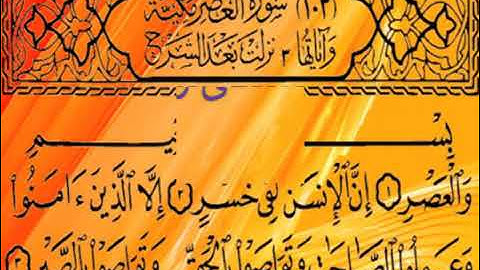 (١٠٣) سورة العصر مكية
وآياتها ٣ نزلت بعد الشرح
وَالْعَصْرِ ١ إِنَّ الْإِنسَٰنَ لَفِي خُسْرٍ ٢ إِلَّا الَّذِينَ ءَامَنُوا
وَعَمِلُوا الصَّالِحَاتِ وَتَوَاصَوْا بِالْحَقِّ وَتَوَاصَوْا بِالصَّبْرِ ٣